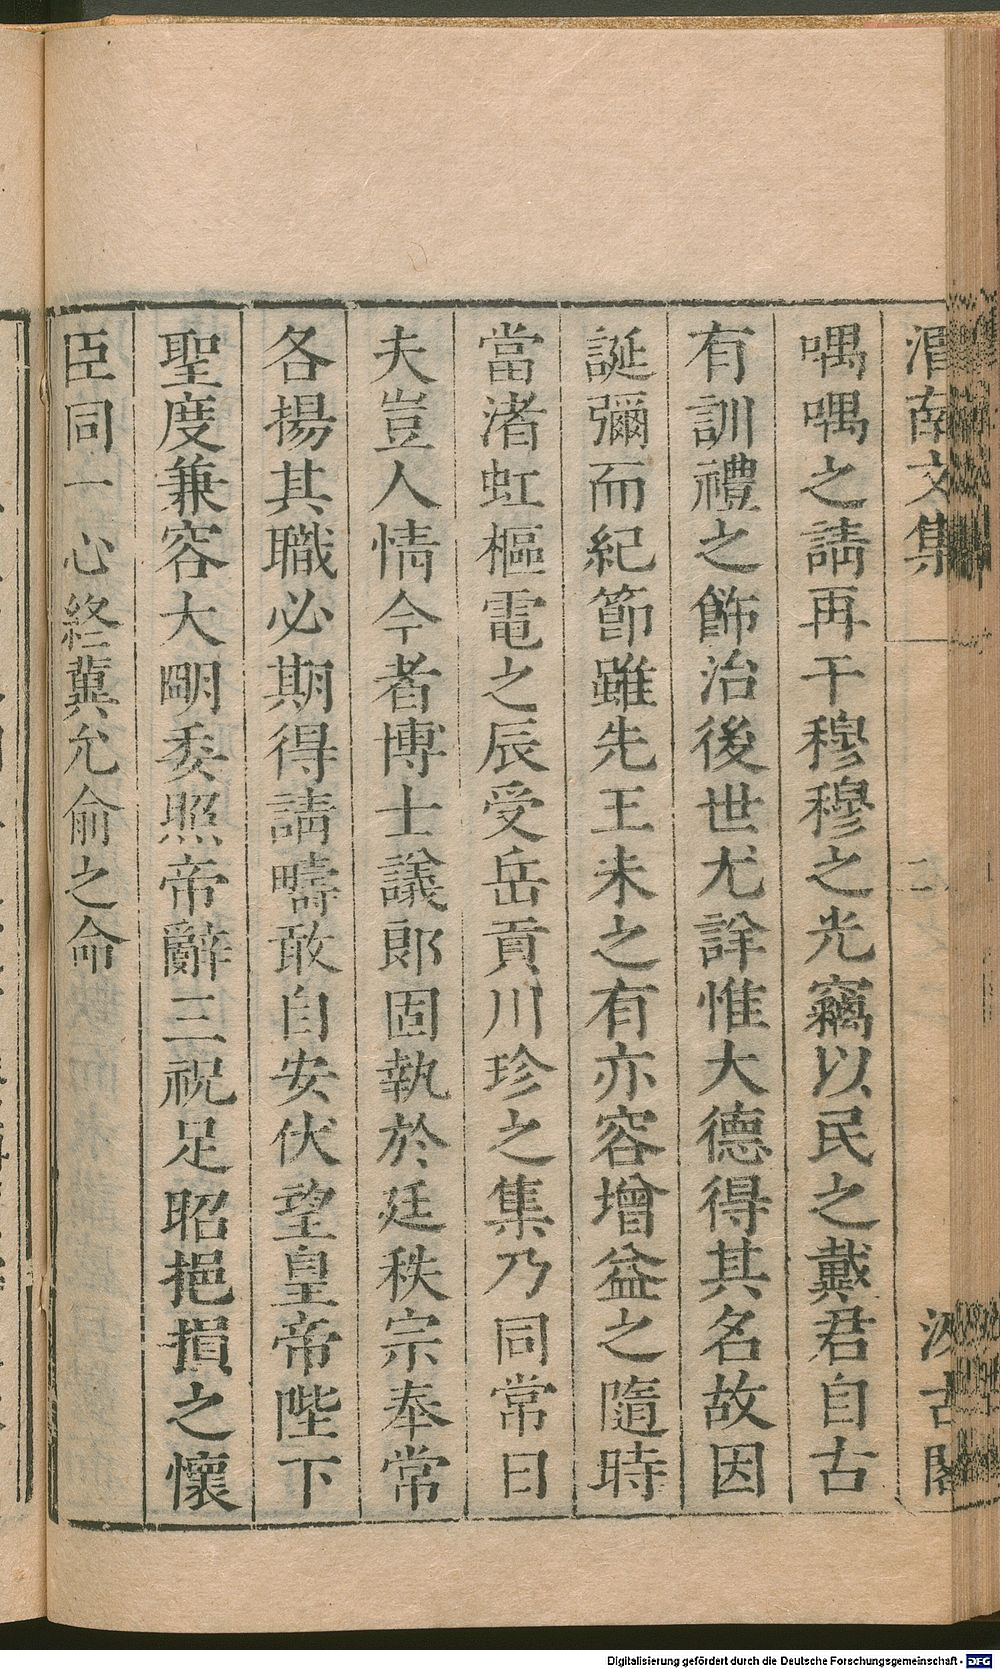 渭南文集
二
汲古閣
喁喁之請再干穆穆之光竊以民之戴君自古
有訓禮之飾治後世尤詳惟大德得其名故因
誕彌而紀節雖先王未之有亦容增益之隨時
當渚虹樞電之辰受岳貢川珍之集乃同常日
夫豈人情今者博士議郎固執於廷秩宗奉常
各揚其職必期得請疇敢自安伏望皇帝陛下
聖度兼容大明委照帝辭三祝足昭挹損之懷
臣同一心終冀允俞之命
Digitalisierung gefördert durch die Deutsche Forschungsgemeinschaft - DFG